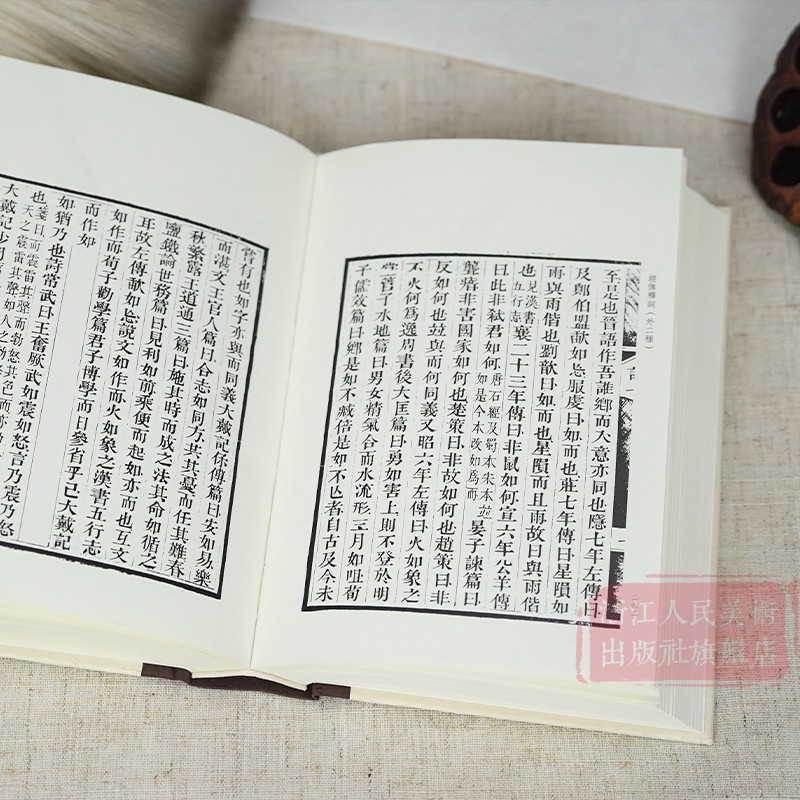 經傳釋詞（外二種）
至是也晉語作吾誰鄉而入意亦同也隱七年左傳曰
及鄭伯盟歃如忘服虔曰如而也莊七年傳曰星隕如
雨與雨偕也劉歆曰如而也星隕而且雨故曰與雨偕
也見漢書五行志襄二十三年傳曰非鼠如何宣六年公羊傳
曰此非弒君如何唐石經及蜀本宋本竝如是今本改如爲而晏子諫篇曰
聾瘖非害國家如何也楚策曰非故如何也趙策曰非
反如何也竝與而何同義又昭六年左傳曰火如象之
不火何爲逸周書後大匡篇曰勇如害上則不登於明
堂管子水地篇曰男女精氣合而水流形三月如咀荀
子儒效篇曰鄉是如不臧倍是如不亡者自古及今未
嘗有也如字亦與而同義大戴記保傅篇曰安如易樂
而湛文王官人篇曰合志如同方共其憂而任其難春
秋繁露王道通三篇曰施其時而成之法其命如循之
鹽鐵論世務篇曰見利如前乘便而起如亦而也互文
耳故左傳歃如忘說文如作而火如象之漢書五行志
如作而荀子勸學篇君子博學而日參省乎己大戴記
而作如
如猶乃也詩常武曰王奮厥武如震如怒言乃震乃怒
大戴記少閒
浙江人民美術
出版社旗艦店